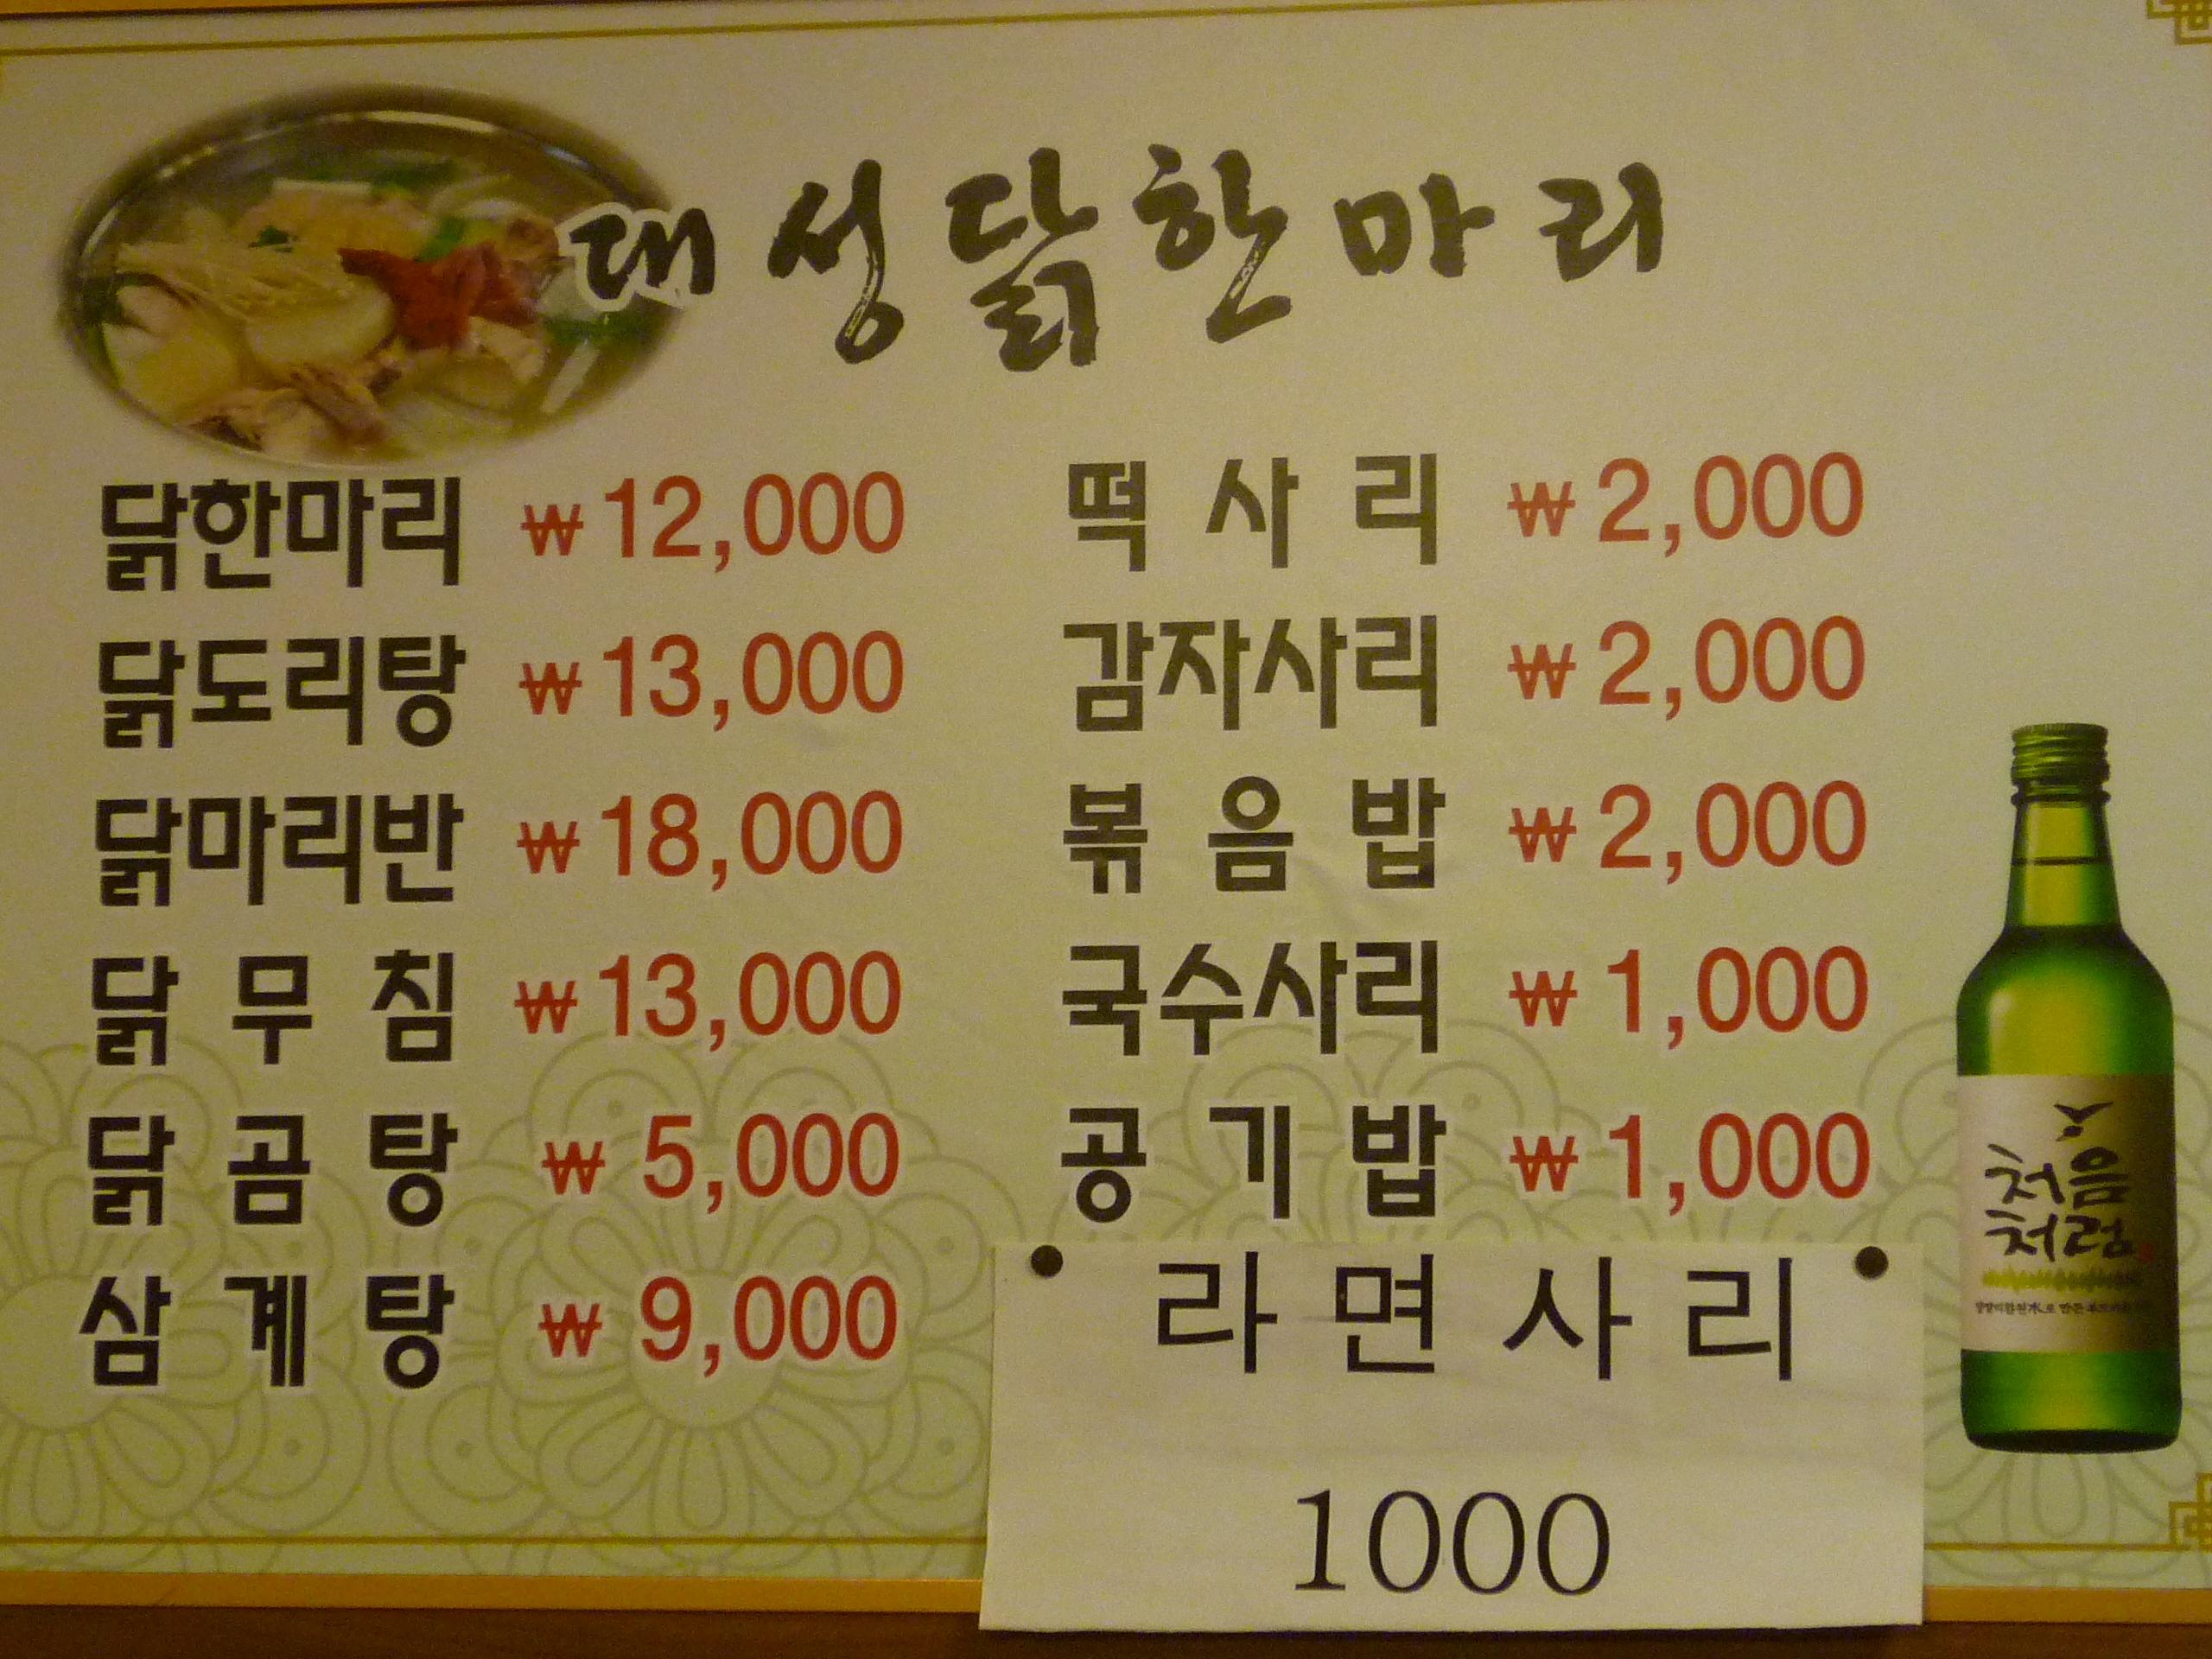 대성닭한마리
닭한마리 ₩12,000
닭도리탕 ₩13,000
닭마리반 ₩18,000
닭무침 ₩13,000
닭곰탕 ₩5,000
삼계탕 ₩9,000
떡사리 ₩2,000
감자사리 ₩2,000
볶음밥 ₩2,000
국수사리 ₩1,000
공기밥 ₩1,000
라면사리
1000
처음
처럼